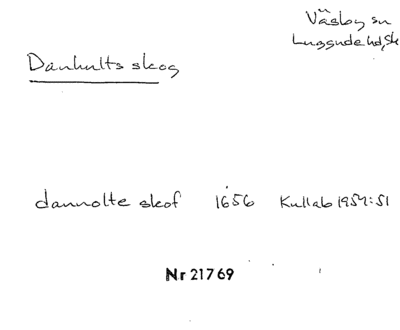 Väsby sn
Luggude hd, Sk
Danhults skog
dannolte skof 1656 Kullab 1957:51
Nr 21769